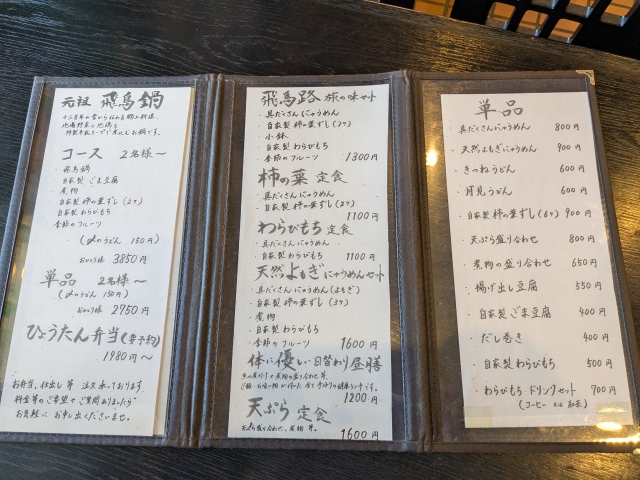 元祖 飛鳥鍋
十三百年の昔から伝わる郷土料理、
地場野菜と地鶏と
特製牛乳スープで煮込むお鍋です。
コース 2名様〜
・飛鳥鍋
・自家製 ごま豆腐
・煮物
・自家製 柿の葉ずし(3ケ)
・自家製 わらびもち
・季節のフルーツ
(〆のうどん 150円)
おひとり様 3850円
単品 2名様〜
(〆のうどん 150円)
おひとり様 2750円
ひょうたん弁当(要予約)
1980円〜
お弁当、仕出し等 注文承っております
料金等のご要望やご質問ありましたら
お気軽に お申し出くださいませ。
飛鳥路 旅の味セット
・具だくさん にゅうめん
・自家製 柿の葉ずし(3ケ)
・小鉢
・自家製 わらびもち
・季節のフルーツ
1300円
柿の葉 定食
・具だくさん にゅうめん
・自家製 柿の葉ずし(3ケ)
1100円
わらびもち 定食
・具だくさん にゅうめん
・自家製 わらびもち
1100円
天然よもぎにゅうめんセット
・具だくさん にゅうめん(よもぎ)
・自家製 柿の葉ずし(3ケ)
・煮物
・自家製 わらびもち
・季節のフルーツ
1600円
体に優しい日替わり昼膳
1200円
天ぷら 定食
1600円
単品
・具だくさん にゅうめん 800円
・天然よもぎにゅうめん 900円
・きつねうどん 600円
・月見うどん 600円
・自家製 柿の葉ずし(6ケ) 900円
・天ぷら盛り合わせ 800円
・煮物の盛り合わせ 650円
・揚げ出し豆腐 550円
・自家製 ごま豆腐 400円
・だし巻き 400円
・自家製 わらびもち 500円
・わらびもち ドリンクセット 700円
(コーヒー 又は 紅茶)